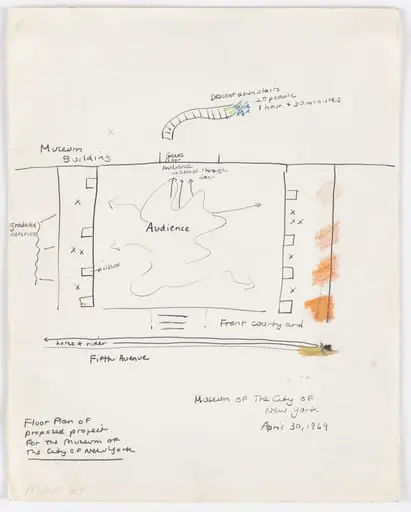 Descent downstairs
20 people
1 hour & 30 minutes
Museum
Building
Glass
Audience
through
Audience
pillars
Front courtyard
horse & rider
Fifth Avenue
Museum of The City of
New York
April 30, 1969
Floor Plan of
proposed project
For the Museum of
The City of New York